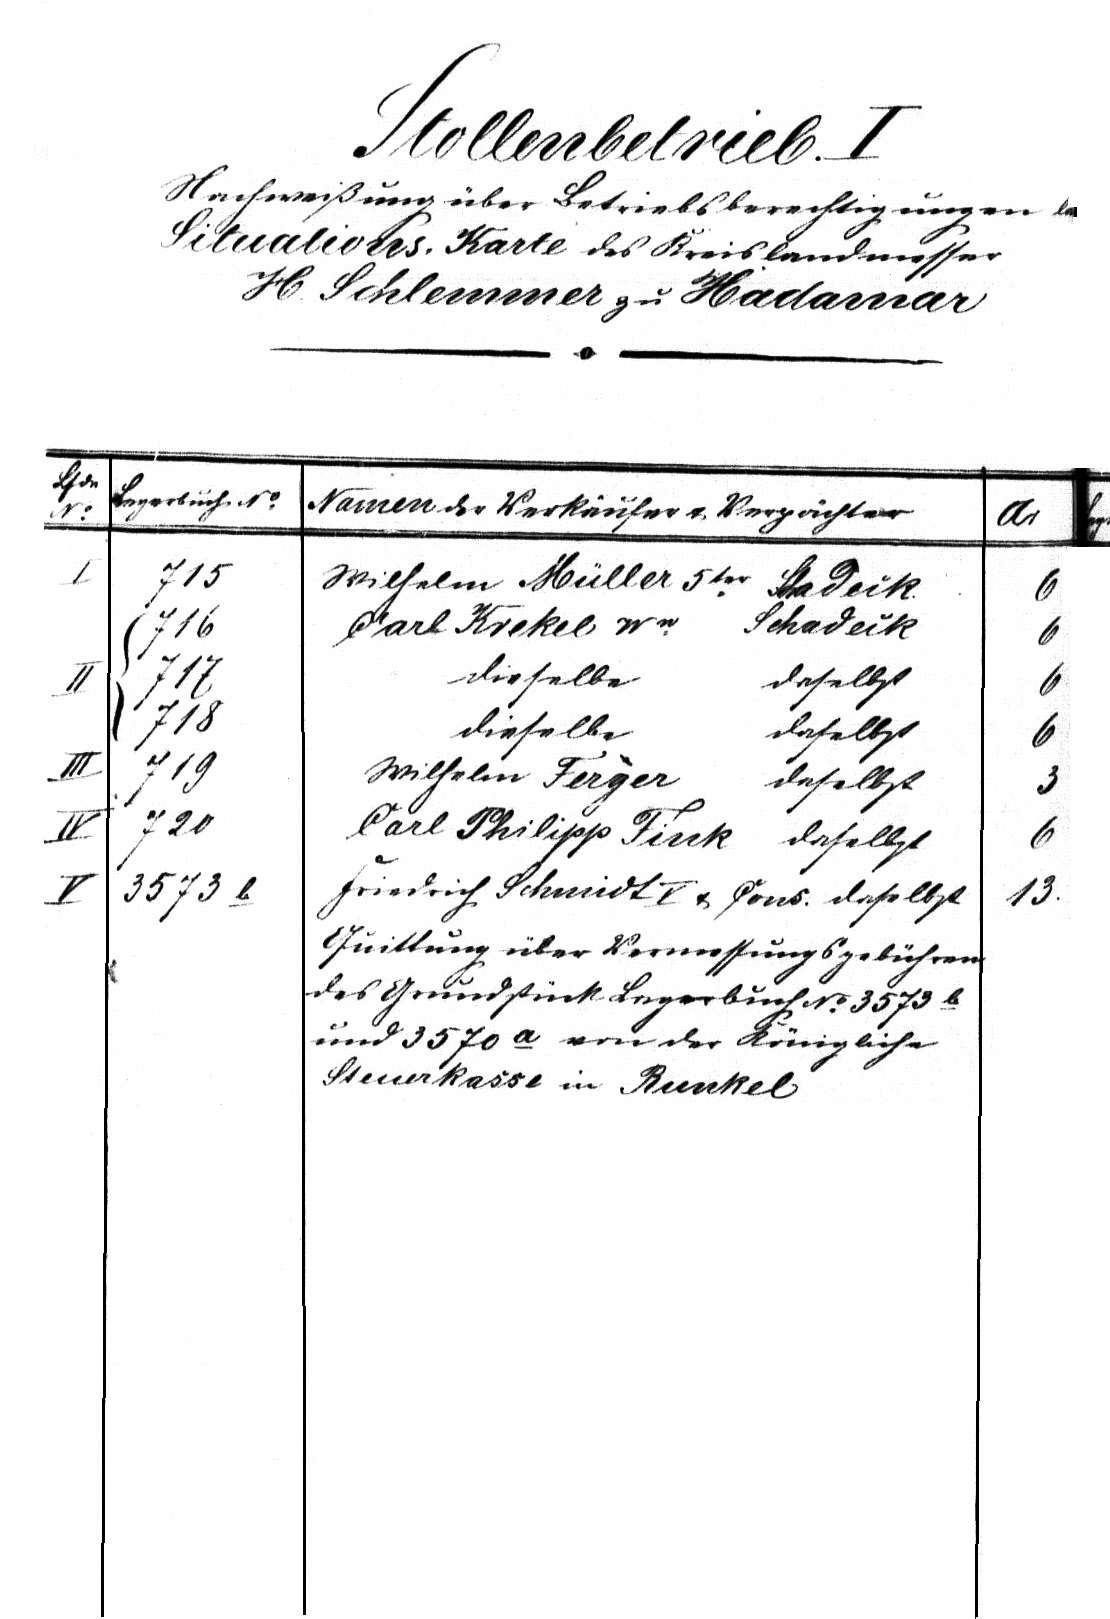 Stollenbetrieb. I
Nachweißung über Betriebsberechtigungen
Situations. Karte des Kreislandmesser
H. Schlemmer zu Hadamar
Lfde No. Lagerbuch No. Namen der Verkäufer u. Verpächter Ar
I 715 Wilhelm Müller 5ter Schadeck. 6
716 Carl Krekel Ww. Schadeck 6
II 717 dieselbe daselbst 6
718 dieselbe daselbst 6
III 719 Wilhelm Ferger daselbst 3
IV 720 Carl Philipp Fink daselbst 6
V 3573 b Friedrich Schmidt V & Cons. daselbst 13.
Quittung über Vermessungsgebühren
des Grundstück Lagerbuch No. 3573 b
und 3570 a von der Königliche
Steuerkasse in Runkel